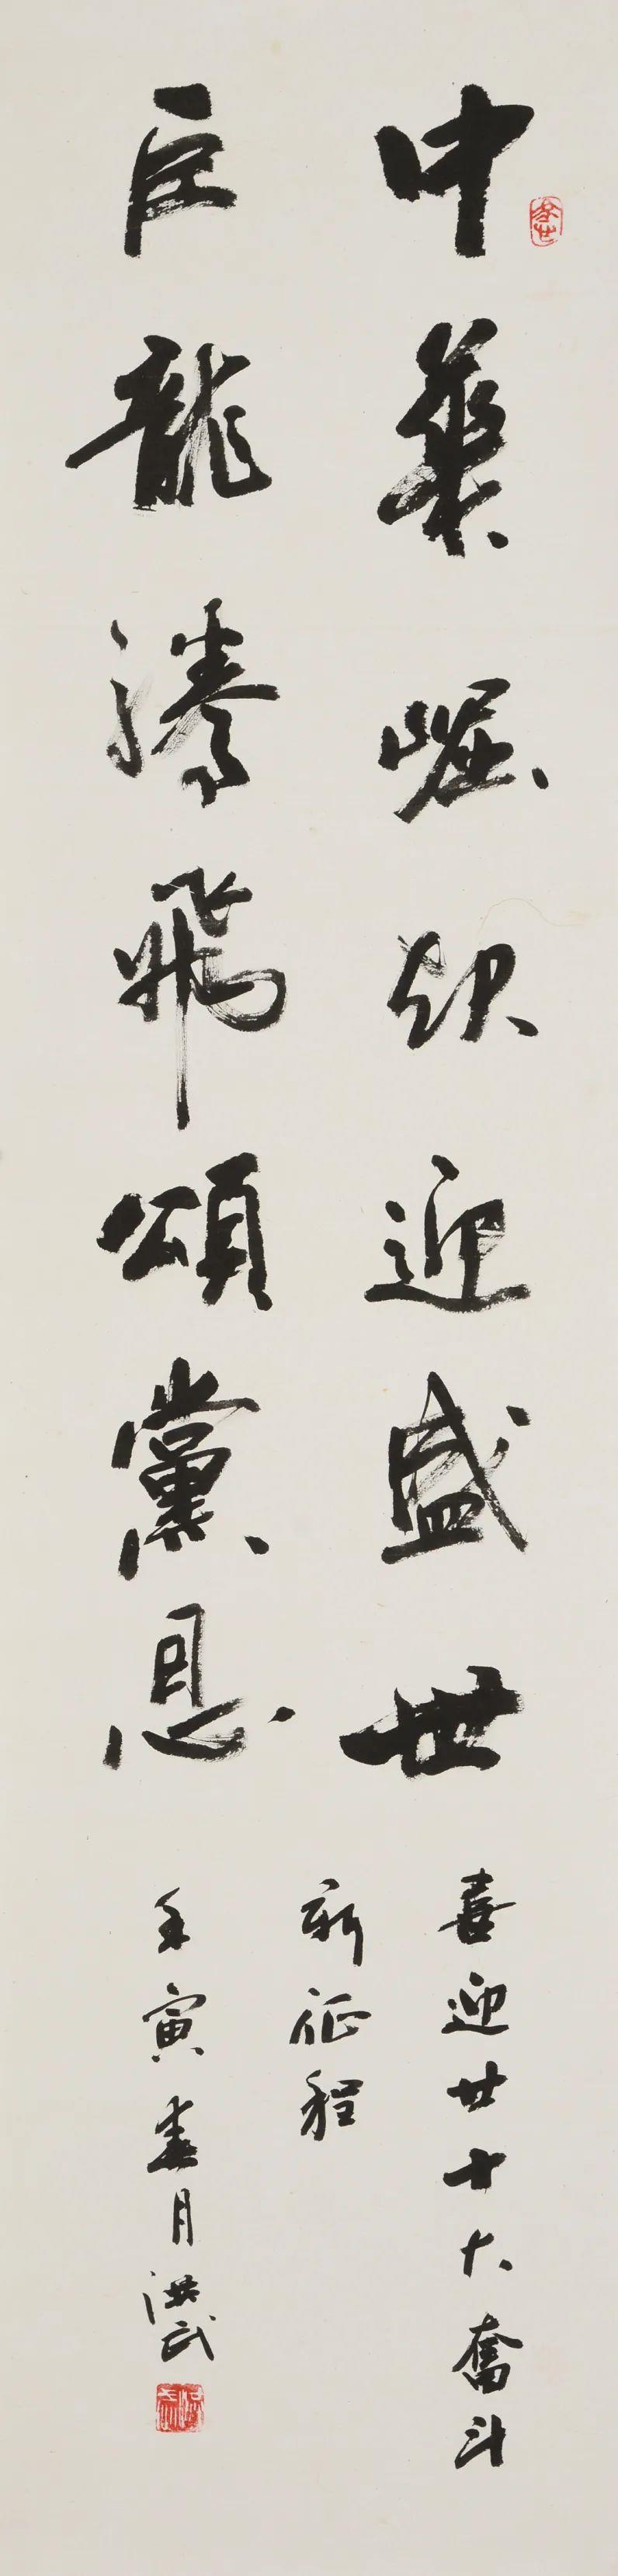 中華崛起迎盛世
巨龍騰飛頌黨恩
喜迎廿十大奮斗
新征程
壬寅春月洪武